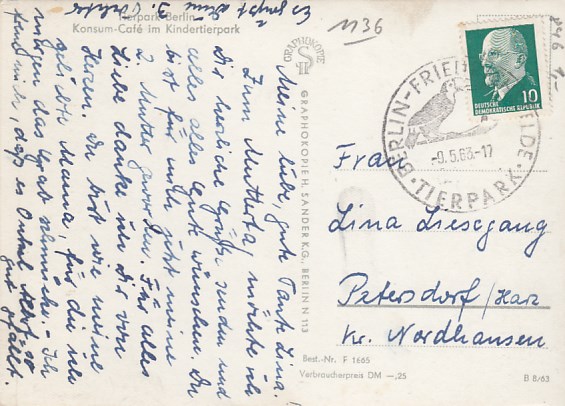 Tierpark Berlin
Konsum-Café im Kindertierpark
Meine liebe, gute Tante Lina.
Zum Muttertag möchte ich
Dir herzliche Grüße senden und
alles alles Gute wünschen. Du
bist für mich jetzt meine
2. Mutter geworden. Für alles
Liebe danke ich Dir von
Herzen. Du bist wie meine
geliebte Mama, für die ich
morgen das Grab schmücke. Ich
freue mich, daß es Onkel
gut gefällt.
Es grüßt Deine
GRAPHOKOPIE
GRAPHOKOPIE H. SANDER K.G., BERLIN N 113
1136
10
DEUTSCHE
DEMOKRATISCHE REPUBLIK
BERLIN-FRIEDRICHSFELDE
-9.5.63-17
TIERPARK
Frau
Lina Liesegang
Petersdorf/Harz
Kr. Nordhausen
Best.-Nr. F 1665
Verbraucherpreis DM -,25
B 8/63